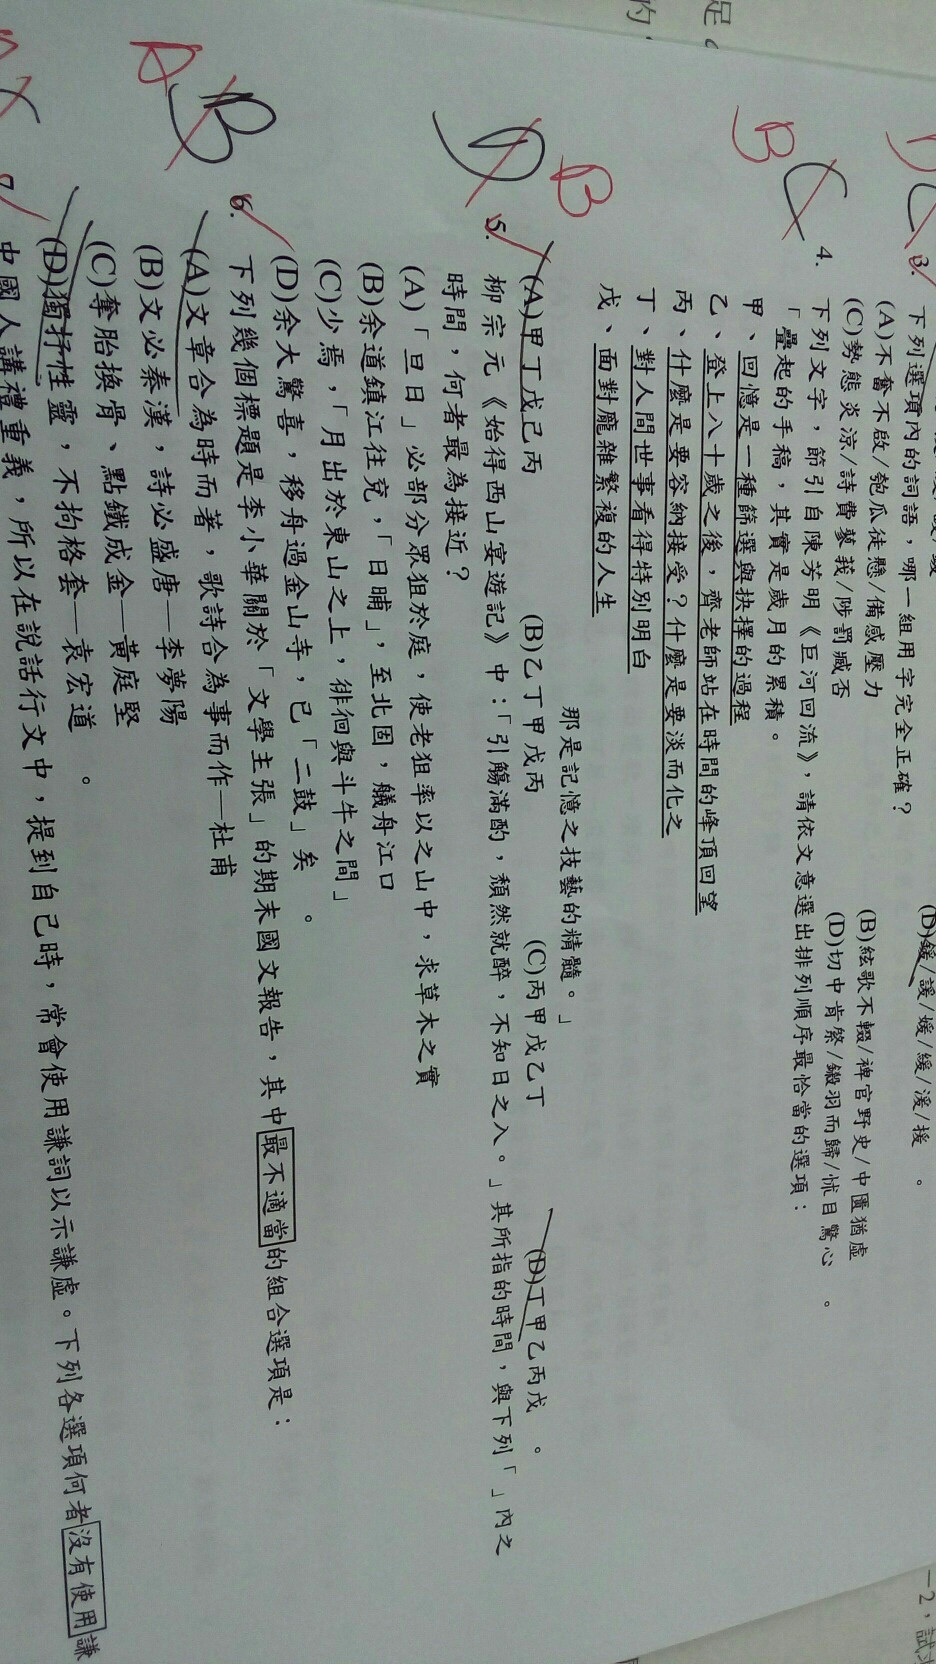 足。
的,
3.
下列選項內的詞語，哪一組用字完全正確？
(A)不奮不啟/匏瓜徒懸/備感壓力
(B)絃歌不輟/裨官野史/中匱猶虛
(C)勢態炎涼/詩費蓼莪/陟罰臧否
(D)切中肯綮/鎩羽而歸/怵目驚心。
(D)鍰/諼/媛/緩/湲/援。
4.
下列文字，節引自陳芳明《巨河回流》，請依文意選出排列順序最恰當的選項：
「疊起的手稿，其實是歲月的累積。
甲、回憶是一種篩選與抉擇的過程
乙、登上八十歲之後，齊老師站在時間的峰頂回望
丙、什麼是要容納接受？什麼是要淡而化之
丁、對人間世事看得特別明白
戊、面對龐雜繁複的人生
那是記憶之技藝的精髓。」
(A)甲丁戊己丙 (B)乙丁甲戊丙 (C)丙甲戊乙丁 (D)丁甲乙丙戊。
5.
柳宗元《始得西山宴遊記》中：「引觴滿酌，頹然就醉，不知日之入。」其所指的時間，與下列「」內之
時間，何者最為接近？
(A)「旦日」必部分眾狙於庭，使老狙率以之山中，求草木之實
(B)余道鎮江往兗，「日晡」，至北固，艤舟江口
(C)少焉，「月出於東山之上，徘徊與斗牛之間」
(D)余大驚喜，移舟過金山寺，已「二鼓」矣。
6.
下列幾個標題是李小華關於「文學主張」的期末國文報告，其中最不適當的組合選項是：
(A)文章合為時而著，歌詩合為事而作—杜甫
(B)文必秦漢，詩必盛唐—李夢陽
(C)奪胎換骨、點鐵成金—黃庭堅
(D)獨抒性靈，不拘格套—袁宏道。
7
中國人講禮重義，所以在說話行文中，提到自己時，常會使用謙詞以示謙虛。下列各選項何者沒有使用謙
B
C
B
D
A
B